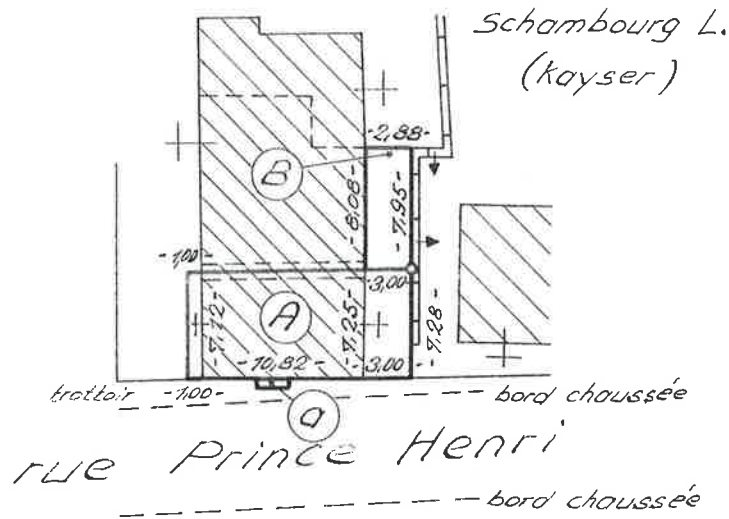 Schambourg L.
(Kayser)
-2,88-
B
-8,08-
-7,95-
-1,00-
-3,00-
A
-7,12-
-7,25-
-7,28-
-10,82-
-3,00-
trottoir
-1,00-
bord chaussée
a
rue Prince Henri
bord chaussée